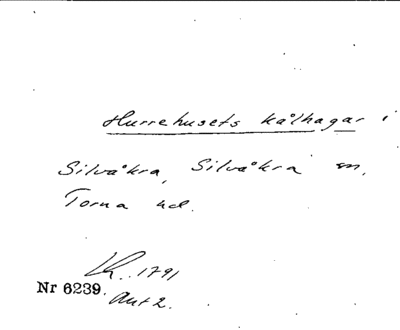 Hurrehusets kålhagar i
Silvåkra, Silvåkra sn,
Torna hd.
Lh. 1791
Nr 6239. Akt 2.